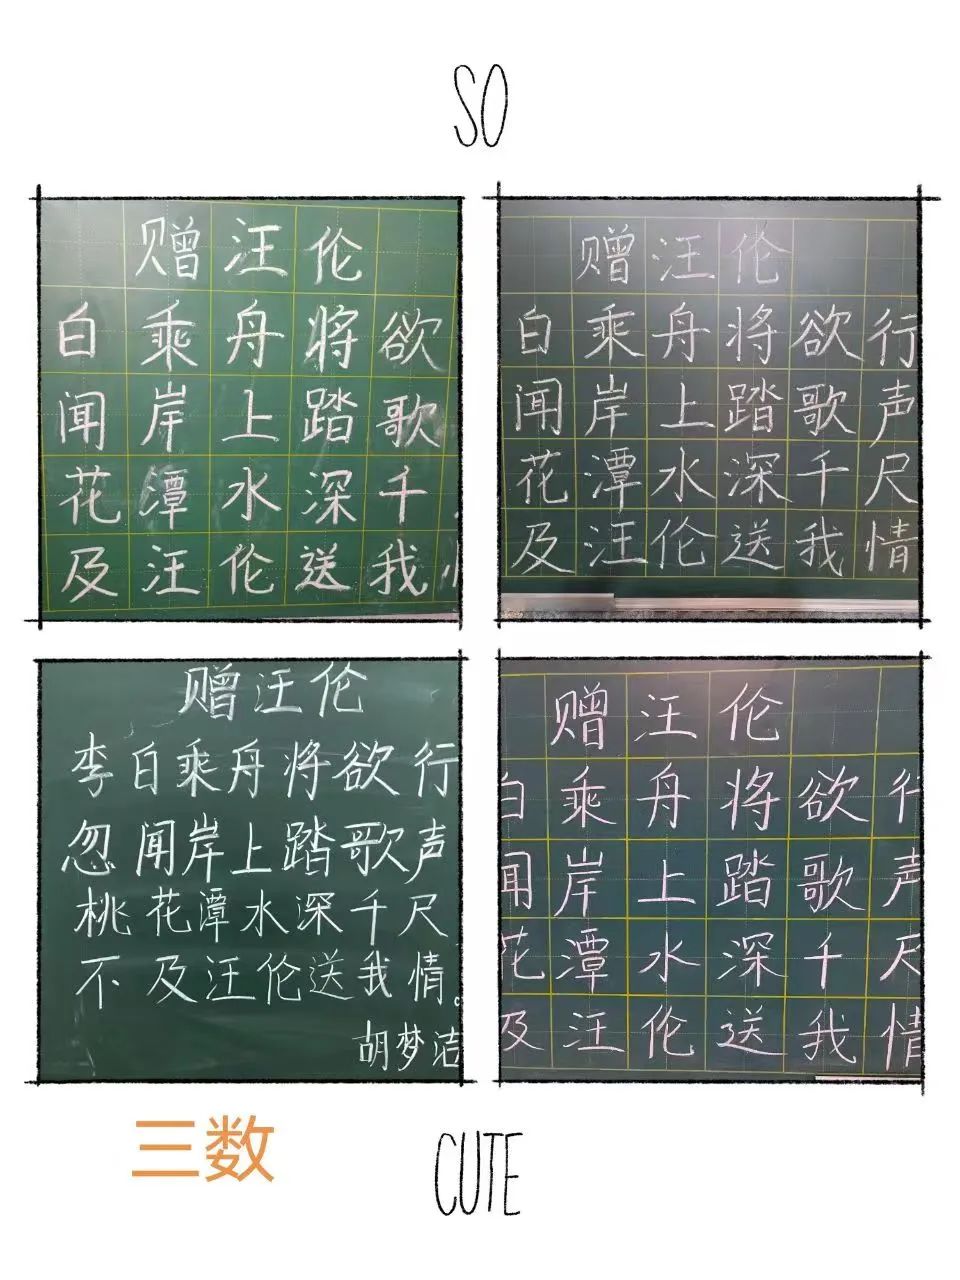 SO
赠汪伦
白乘舟将欲
闻岸上踏歌
花潭水深千
及汪伦送我
赠汪伦
白乘舟将欲行
闻岸上踏歌声
花潭水深千尺
及汪伦送我情
赠汪伦
李白乘舟将欲行
忽闻岸上踏歌声
桃花潭水深千尺
不及汪伦送我情。
胡梦洁
赠汪伦
白乘舟将欲行
闻岸上踏歌声
花潭水深千尺
及汪伦送我情
三数
CUTE